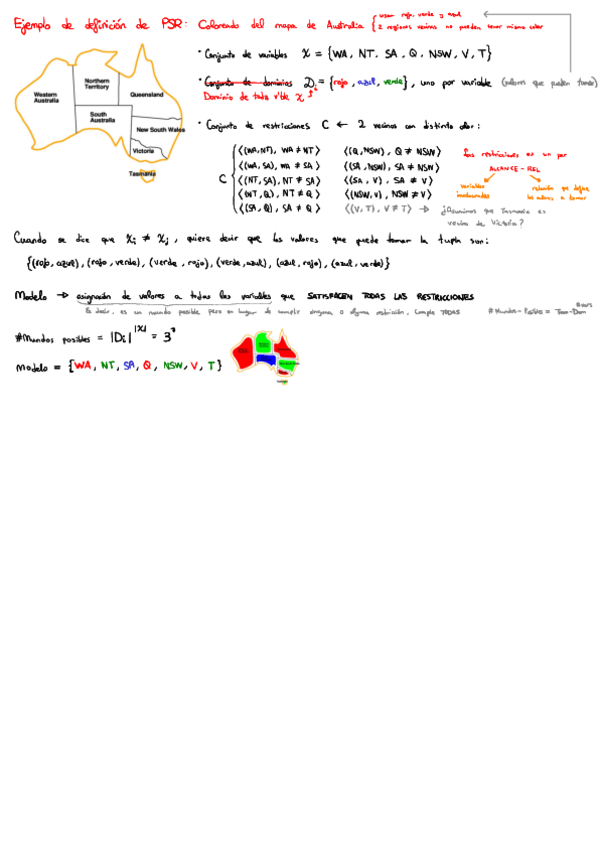 Ejemplo de definición de PSR: Coloreado del mapa de Australia { usar rojo, verde y azul
2 regiones vecinas no pueden tener mismo color
· Conjunto de variables X = {WA, NT, SA, Q, NSW, V, T}
· Conjunto de dominios Di = {rojo, azul, verde}, uno por variable (valores que pueden tomar)
Dominio de toda v'ble x
· Conjunto de restricciones C ← 2 vecinos con distinto color:
Western Australia
Northern Territory
Queensland
South Australia
New South Wales
Victoria
Tasmania
C {
⟨(WA, NT), WA ≠ NT⟩ ⟨(Q, NSW), Q ≠ NSW⟩
⟨(WA, SA), WA ≠ SA⟩ ⟨(SA, NSW), SA ≠ NSW⟩
⟨(NT, SA), NT ≠ SA⟩ ⟨(SA, V), SA ≠ V⟩
⟨(NT, Q), NT ≠ Q⟩ ⟨(NSW, V), NSW ≠ V⟩
⟨(SA, Q), SA ≠ Q⟩ ⟨(V, T), V ≠ T⟩ → ¿Asumimos que Tasmania es
vecina de Victoria?
Las restricciones es un par
ALCANCE - REL
variables involucradas
relación que define
los valores a tomar
Cuando se dice que Xi ≠ Xj, quiere decir que los valores que puede tomar la tupla son:
{(rojo, azul), (rojo, verde), (verde, rojo), (verde, azul), (azul, rojo), (azul, verde)}
Modelo → asignación de valores a todas las variables que SATISFACEN TODAS LAS RESTRICCIONES
Es decir, es un mundo posible pero en lugar de cumplir ninguna o alguna restricción, cumple TODAS
#Mundos posibles = |Di|^|X| = 3^7
Modelo = {WA, NT, SA, Q, NSW, V, T}